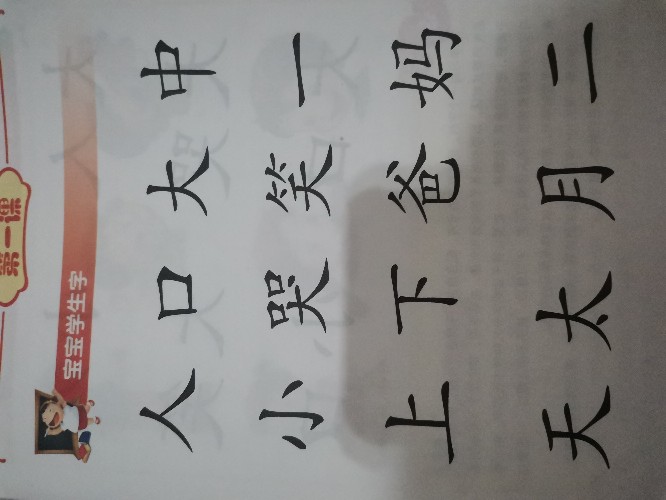 第一课
宝宝学生字
人口大中
小哭笑一
上下爸妈
天太月二